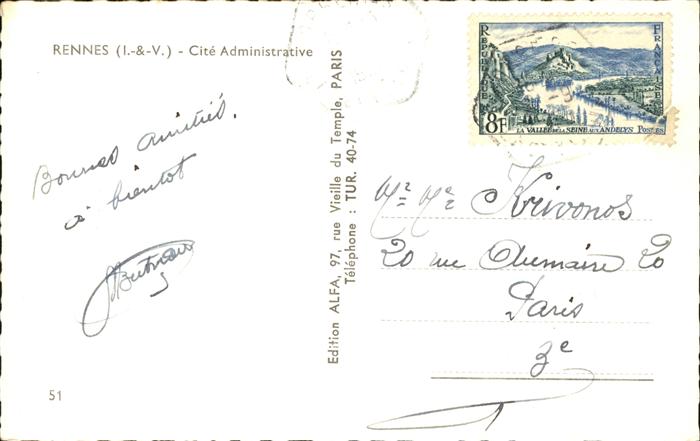 RENNES (I.-&-V.) - Cité Administrative
Bonnes amitiés.
à bientôt
51
Edition ALFA, 97, rue Vieille du Temple, PARIS
Téléphone : TUR. 40-74
REPUBLIQUE
FRANÇAISE
8F
LA VALLÉE DE LA SEINE AUX ANDELYS POSTES
Mr Me Krivonos
20 rue Aumaire 20
Paris
3e